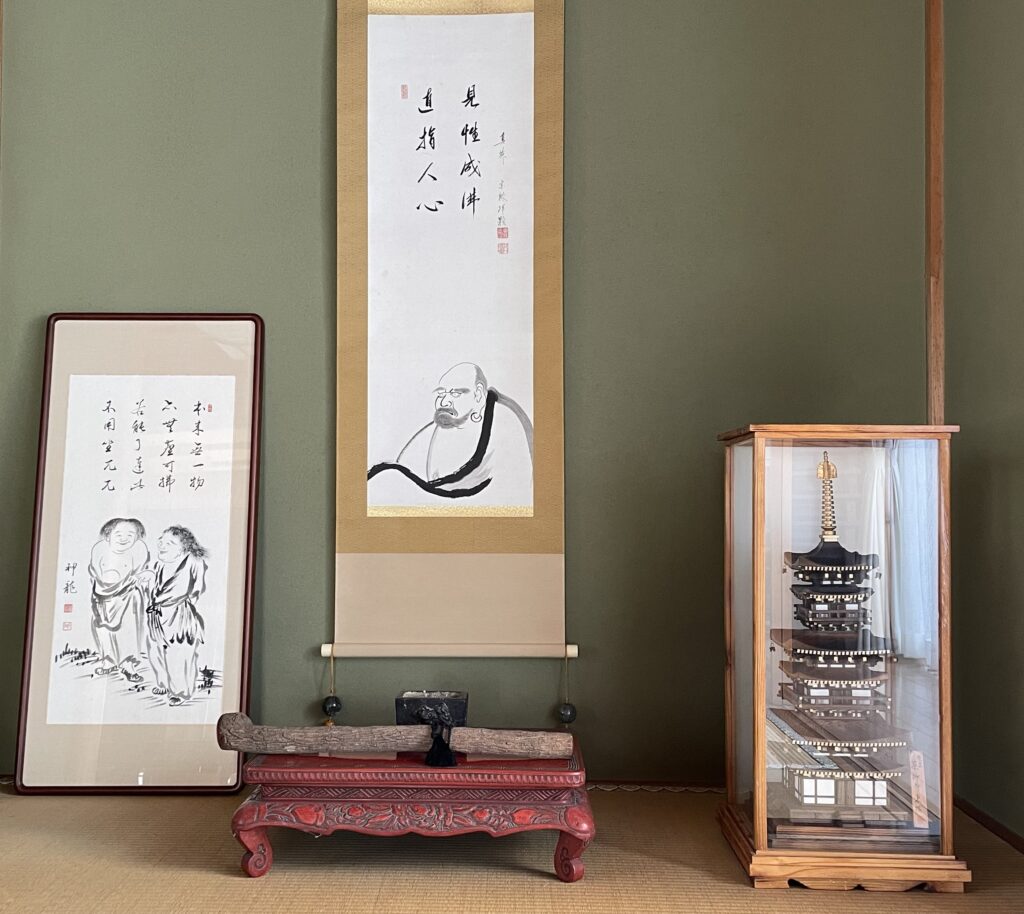 直指人心
見性成佛
本来無一物
亦無塵可拂
若能了達此
不用坐兀兀
神龍